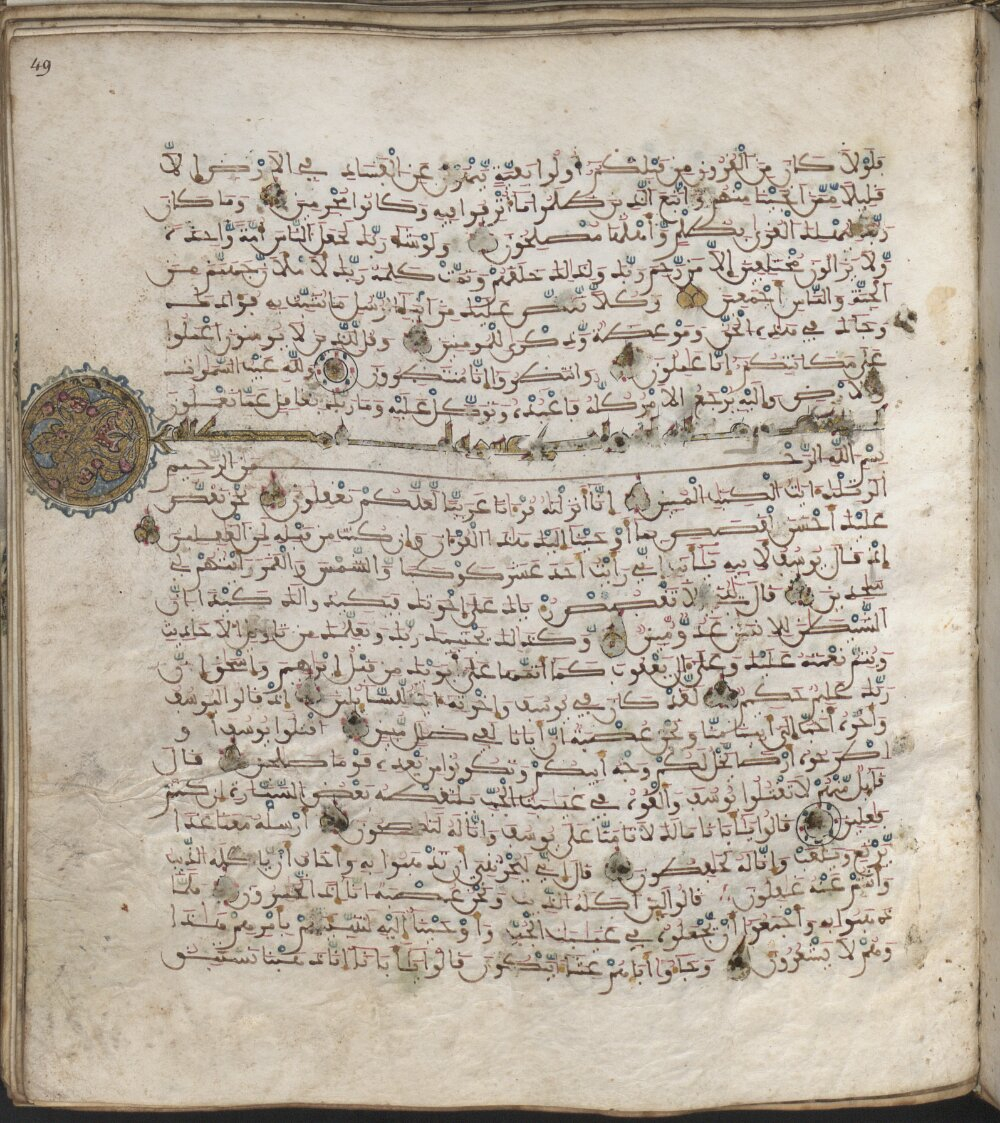 49
فلولا كان من القرون من قبلكم أولوا بقية ينهون عن الفساد في الارض الا
قليلا ممن انجينا منهم واتبع الذين ظلموا ما أترفوا فيه وكانوا مجرمين وما كان
ربك ليهلك القرى بظلم وأهلها مصلحون ولو شاء ربك لجعل الناس أمة واحدة
ولا يزالون مختلفين إلا من رحم ربك ولذلك خلقهم وتمت كلمة ربك لأملأن جهنم من
الجنة والناس أجمعين وكلا نقص عليك من أنباء الرسل ما نثبت به فؤادك
وجاءك في هذه الحق وموعظة وذكرى للمؤمنين وقل للذين لا يومنون اعملوا
على مكانتكم إنا عاملون وانتظروا إنا منتظرون ولله غيب السموات
والأرض وإليه يرجع الأمر كله فاعبده وتوكل عليه وما ربك بغافل عما تعملون
بسم الله الرحمن الرحيم
الر تلك ايت الكتب المبين إنا أنزلنه قرءانا عربيا لعلكم تعقلون نحن نقص
عليك أحسن القصص بما أوحينا إليك هذا القرءان وإن كنت من قبله لمن الغفلين
إذ قال يوسف لأبيه يأبت إني رأيت أحد عشر كوكبا والشمس والقمر رأيتهم لي
سجدين قال يبني لا تقصص رءياك على إخوتك فيكيدوا لك كيدا إن
الشيطن للإنسن عدو مبين وكذلك يجتبيك ربك ويعلمك من تأويل الأحاديث
ويتم نعمته عليك وعلى ءال يعقوب كما أتمها على أبويك من قبل إبرهيم وإسحق إن
ربك عليم حكيم لقد كان في يوسف وإخوته ءايت للسائلين إذ قالوا ليوسف
وأخوه أحب إلى أبينا منا ونحن عصبة إن أبانا لفي ضلل مبين اقتلوا يوسف أو
اطرحوه أرضا يخل لكم وجه أبيكم وتكونوا من بعده قوما صلحين قال
قائل منهم لا تقتلوا يوسف وألقوه في غيبت الجب يلتقطه بعض السيارة إن كنتم
فعلين قالوا يأبانا مالك لا تأمنا على يوسف وإنا له لنصحون أرسله معنا غدا
يرتع ويلعب وإنا له لحفظون قال إني ليحزنني أن تذهبوا به وأخاف أن يأكله الذيب
وأنتم عنه غفلون قالوا لئن أكله الذيب ونحن عصبة إنا إذا لخسرون فلما
ذهبوا به وأجمعوا أن يجعلوه في غيبت الجب وأوحينا إليه لتنبئنهم بأمرهم هذا
وهم لا يشعرون وجاءو أباهم عشاء يبكون قالوا يأبانا إنا ذهبنا نستبق